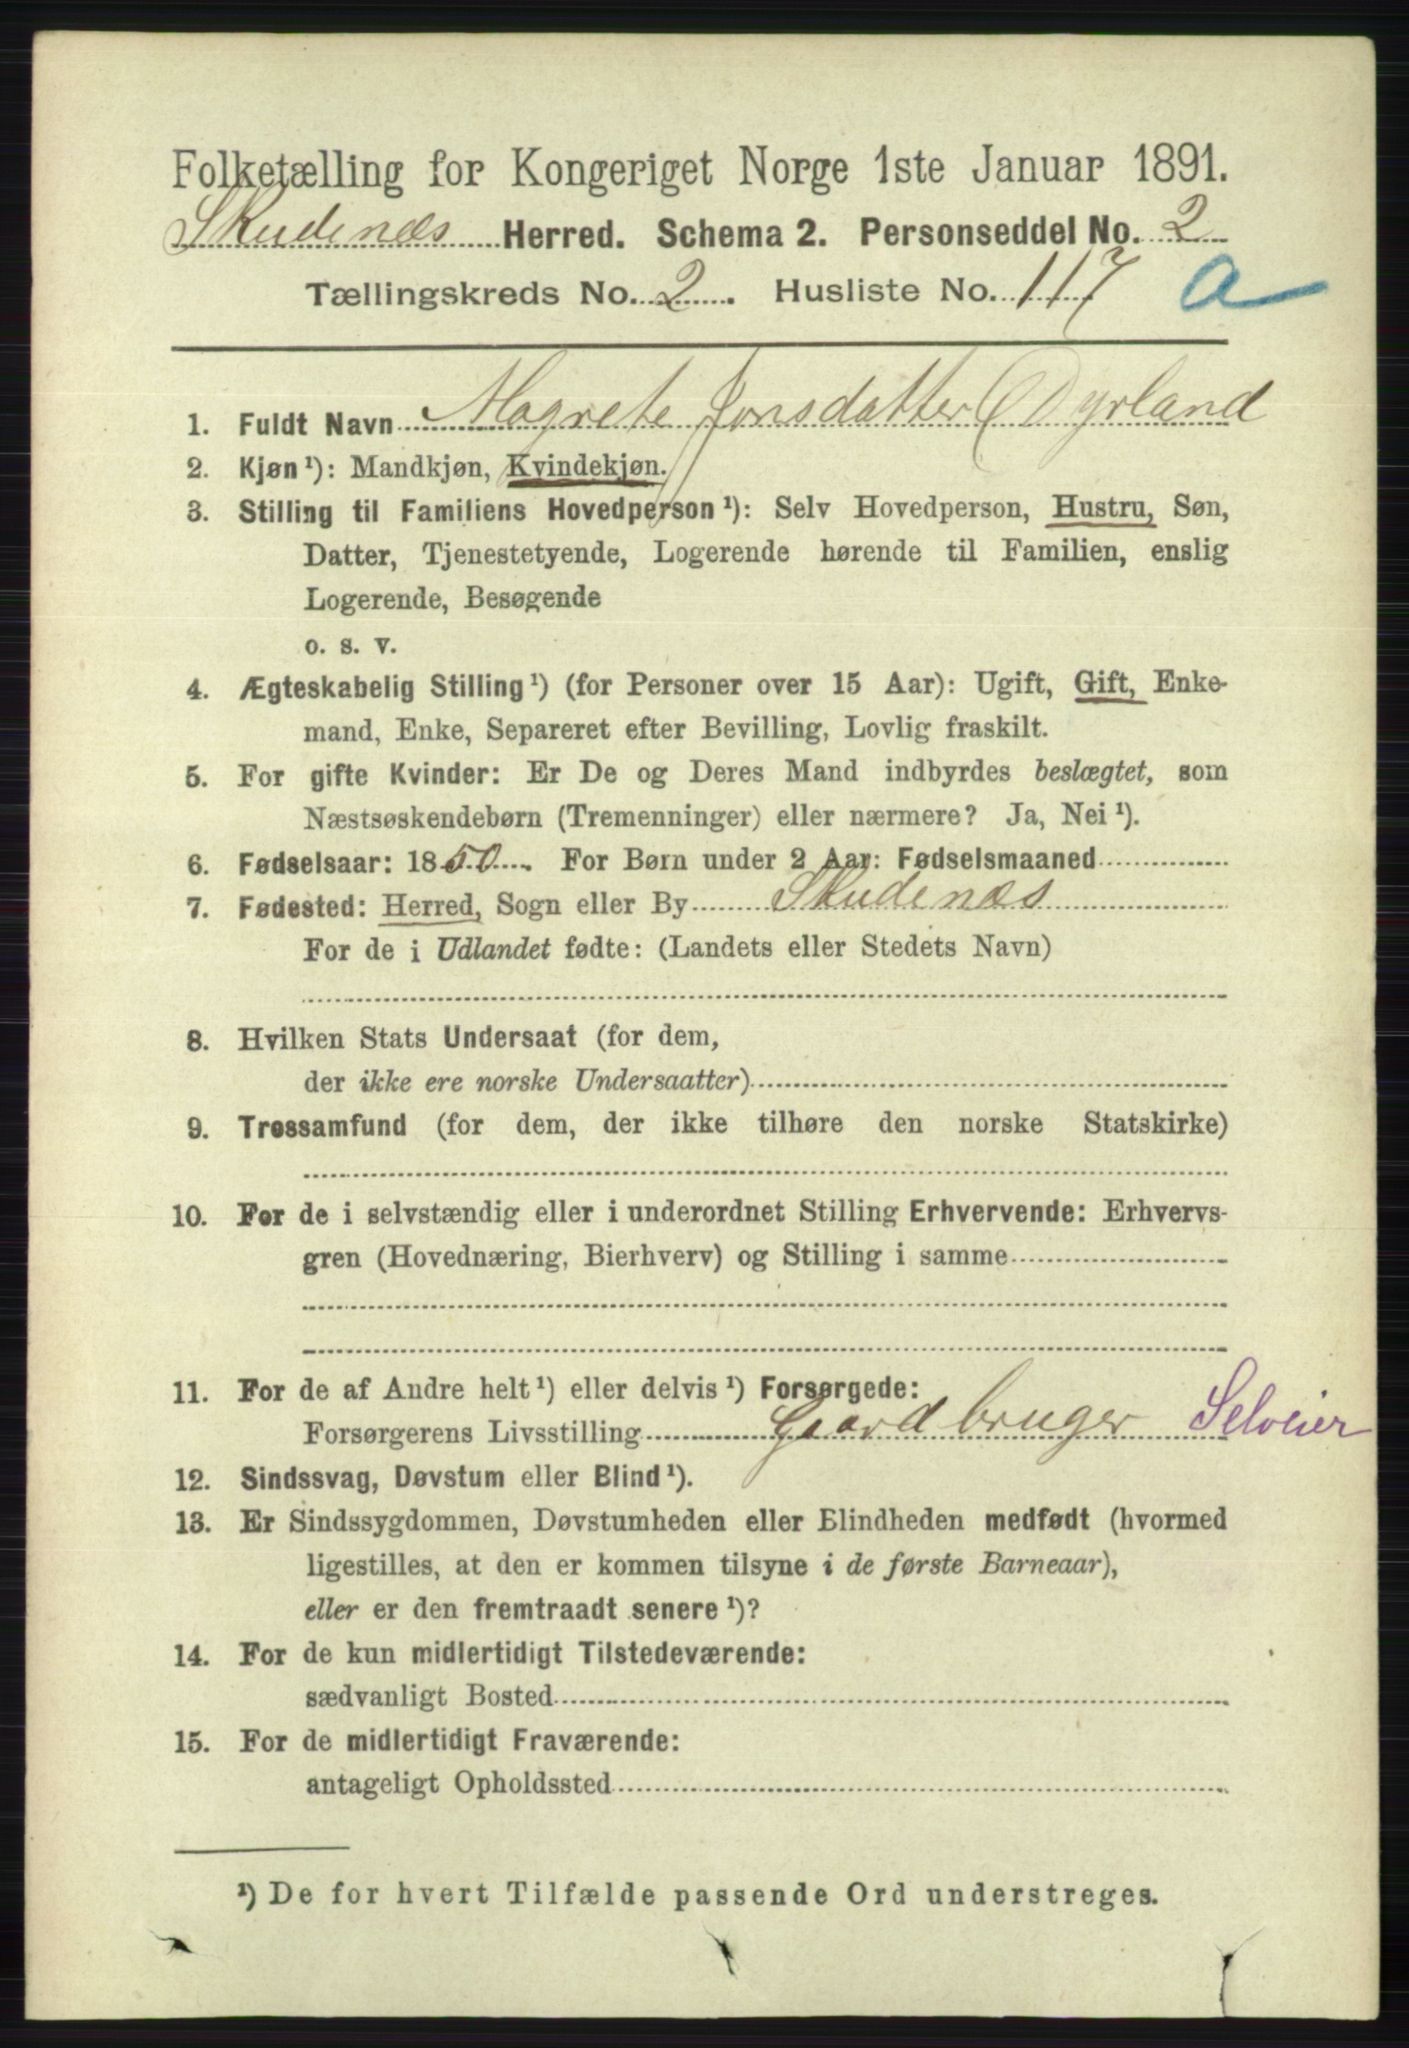 Folketælling for Kongeriget Norge 1ste Januar 1891.
Skudenæs Herred. Schema 2. Personseddel No. 2
Tællingskreds No. 2. Husliste No. 117 a
1. Fuldt Navn Magrete Jonsdatter Dyrland
2. Kjøn¹): Mandkjøn, Kvindekjøn.
3. Stilling til Familiens Hovedperson¹): Selv Hovedperson, Hustru, Søn,
Datter, Tjenestetyende, Logerende hørende til Familien, enslig
Logerende, Besøgende
o. s. v.
4. Ægteskabelig Stilling¹) (for Personer over 15 Aar): Ugift, Gift, Enke-
mand, Enke, Separeret efter Bevilling, Lovlig fraskilt.
5. For gifte Kvinder: Er De og Deres Mand indbyrdes beslægtet, som
Næstsøskendebørn (Tremenninger) eller nærmere? Ja, Nei¹).
6. Fødselsaar: 1850. For Børn under 2 Aar: Fødselsmaaned
7. Fødested: Herred, Sogn eller By Skudenæs
For de i Udlandet fødte: (Landets eller Stedets Navn)
8. Hvilken Stats Undersaat (for dem,
der ikke ere norske Undersaatter)
9. Trossamfund (for dem, der ikke tilhøre den norske Statskirke)
10. For de i selvstændig eller i underordnet Stilling Erhvervende: Erhvervs-
gren (Hovednæring, Bierhverv) og Stilling i samme
11. For de af Andre helt¹) eller delvis¹) Forsørgede:
Forsørgerens Livsstilling Gaardbruger Selveier
12. Sindssvag, Døvstum eller Blind¹).
13. Er Sindssygdommen, Døvstumheden eller Blindheden medfødt (hvormed
ligestilles, at den er kommen tilsyne i de første Barneaar),
eller er den fremtraadt senere¹)?
14. For de kun midlertidigt Tilstedeværende:
sædvanligt Bosted
15. For de midlertidigt Fraværende:
antageligt Opholdssted
¹) De for hvert Tilfælde passende Ord understreges.